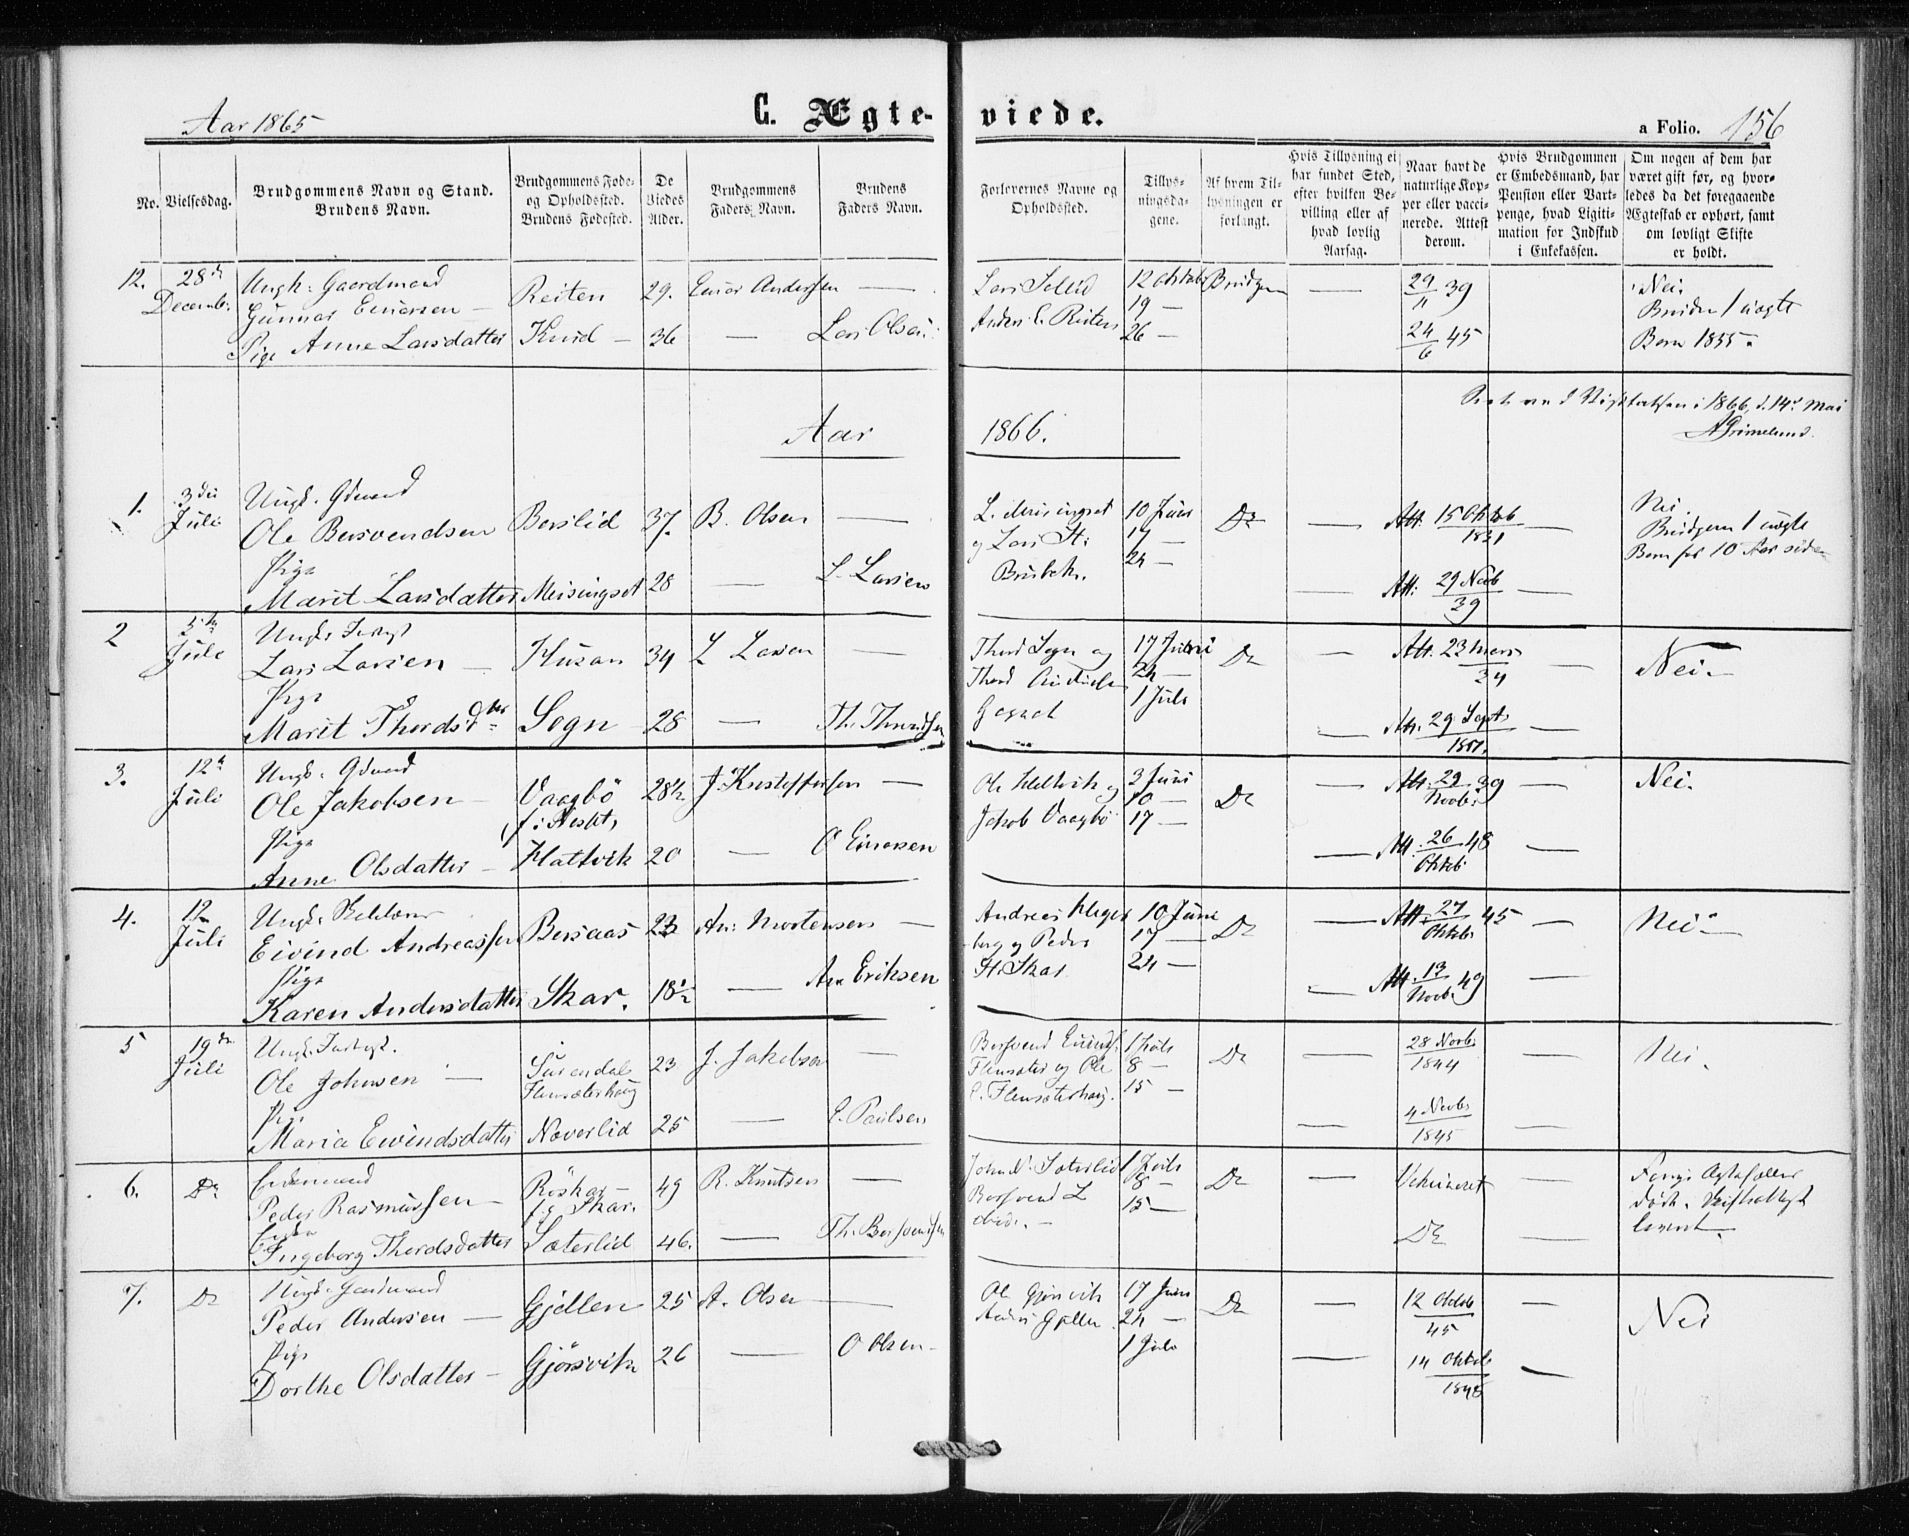 Aar 1865
C. Ægte-
viede.
a Folio. 156
No.
Vielsesdag.
Brudgommens Navn og Stand.
Brudens Navn.
Brudgommens Føde-
og Opholdssted.
Brudens Fødested.
De
Viedes
Alder.
Brudgommens
Faders Navn.
Brudens
Faders Navn.
Forlovernes Navne og
Opholdssted.
Tillys-
ningsda-
gene.
Af hvem Til-
lysningen er
forlangt.
Hvis Tillysning ei
har fundet Sted,
efter hvilken Be-
villing eller af
hvad lovlig
Aarsag.
Naar havt de
naturlige Kop-
per eller vacci-
nerede. Attest
derom.
Hvis Brudgommen
er Embedsmand, har
Pension eller Vart-
penge, hvad Ligiti-
mation for Indskud
i Enkekassen.
Om nogen af dem har
været gift før, og hvor-
ledes da det foregaaende
Ægteskab er ophørt, samt
om lovligt Skifte
er holdt.
12. 28de Decembr.
Ungk. Gaardmand
Gunnar Einersen — Reiten 29. Einar Andersen —
Pige Anne Larsdatter Kvud — 36 — Lars Olsen
Lars Sollid
Anders E. Reiten
12 Oktobr
19 —
26 —
Brudgm —
29/11 39
24/6 45
Nei.
Bruden 1 uægte
Barn 1855.
1866, d. 14de Mai
Grimelund.
Aar 1866.
1. 3die Juli
Ungk. Gdmand
Ole Bersvendsen Berslid 37. B. Olsen —
Pige
Marit Larsdatter Meisingset 28 — L. Larsen
L. Meisingset
og Lars St.
Brubek.
10 Juni
17 —
24 —
Do — Att. 15 Oktob 1831 —
— Att. 29 Novb 39 —
Nei.
Brudgom 1 uægte
Barn for 10 Aar siden
2 5te Juli
Ungk.
Lars Larsen — Husan 34 L Larsen —
Pige
Marit Thordsdtter Sogn 28 — Th. Thordsen
Thord Sogn og
Thord
17 Juni
24 —
1 Juli
Do — Att. 23 Mars 34 —
— Att. 29 Sept
Nei.
3. 12te Juli
Ungk. Gdmand
Ole Jakobsen — Vaagbö 28½ J. Kristoffersen —
Pige
Anne Olsdatter — Hattvik 20 — O Einersen
Ole Hattvik og
Jakob Vaagbö
3 Juni
10 —
17 —
Do — Att. 29 Novbr 39 —
— Att. 26 Oktb. 48 —
Nei.
4. 12 Juli
Ungk.
Eivind Andreassen Bersaas 23 An: Mortensen —
Pige
Karen Andersdatter Skar. 18½ — An Eriksen
Andreas
berg og Peder
St. Skar
10 Juni
17 —
24 —
Do — Att. 27 Oktbr 45 —
— Att. 13 Novb. 49 —
Nei —
5 19de Juli
Ungk.
Ole Johnsen — Surendal 23 J. Jakobsen —
Flensæterhaug
Pige
Maria Eivindsdatter Næverlid 25 — E. Paulsen
Bersvend
Flensæter og Ole
E. Flensæterhaug.
1 Juli
8 —
15 —
Do — 28 Novb. 1844 —
— 4 Novb. 1845 —
Nei.
6. Do
Enkemand
Peder Rasmussen — Röskar — 49 R. Knutsen —
Skar.
Enke
Ingeborg Thordsdatter Sæterlid 46. — Th. Bersvendsen
John N. Sæterlid
Bersvend L
1 Juli
8 —
15 —
Do — Vakcineret —
Do
Forrige Ægtefæller
døde. Skifte
7. Do
Ungk. Gaardmand
Peder Andersen — Gjellen 25 A. Olsen —
Pige
Dorthe Olsdatter — Gjörsvik 26 — O Olsen —
Ole Gjörsvik
Anders Gjellen
17 Juni
24 —
1 Juli
Do — 12 Oktob 45 —
— 14 Oktob —
Nei